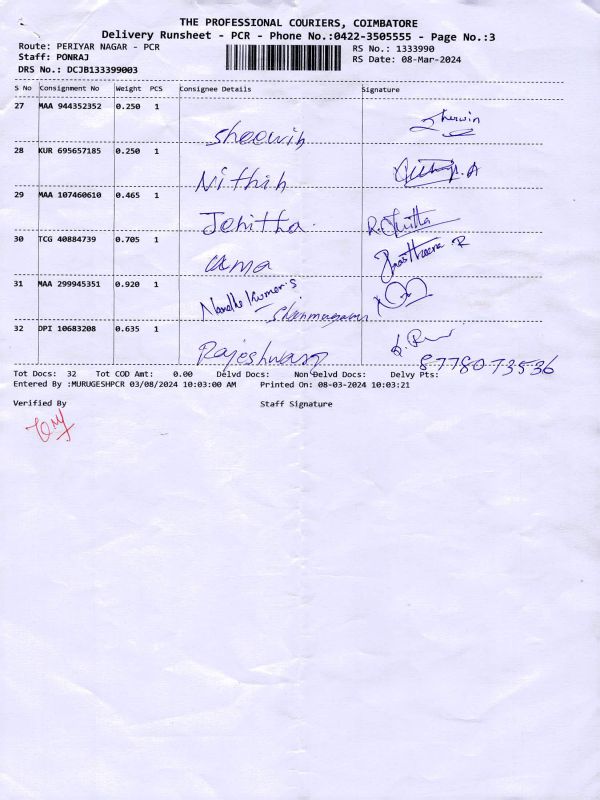 THE PROFESSIONAL COURIERS, COIMBATORE
Delivery Runsheet - PCR - Phone No.:0422-3505555 - Page No.:3
Route: PERIYAR NAGAR - PCR RS No.: 1333990
Staff: PONRAJ RS Date: 08-Mar-2024
DRS No.: DCJB133399003
S No Consignment No Weight PCS Consignee Details Signature
27 MAA 944352352 0.250 1
Sheewin Sherwin
28 KUR 695657185 0.250 1
Nithih
29 MAA 107460610 0.465 1
Jenitha. R.
30 TCG 40884739 0.705 1
uma
31 MAA 299945351 0.920 1
Nandha Kumar.s
Shanmugam
32 DPI 10683208 0.635 1
Rajeshwary 8778073536
Tot Docs: 32 Tot COD Amt: 0.00 Delvd Docs: Non Delvd Docs: Delvy Pts:
Entered By :MURUGESHPCR 03/08/2024 10:03:00 AM Printed On: 08-03-2024 10:03:21
Verified By Staff Signature